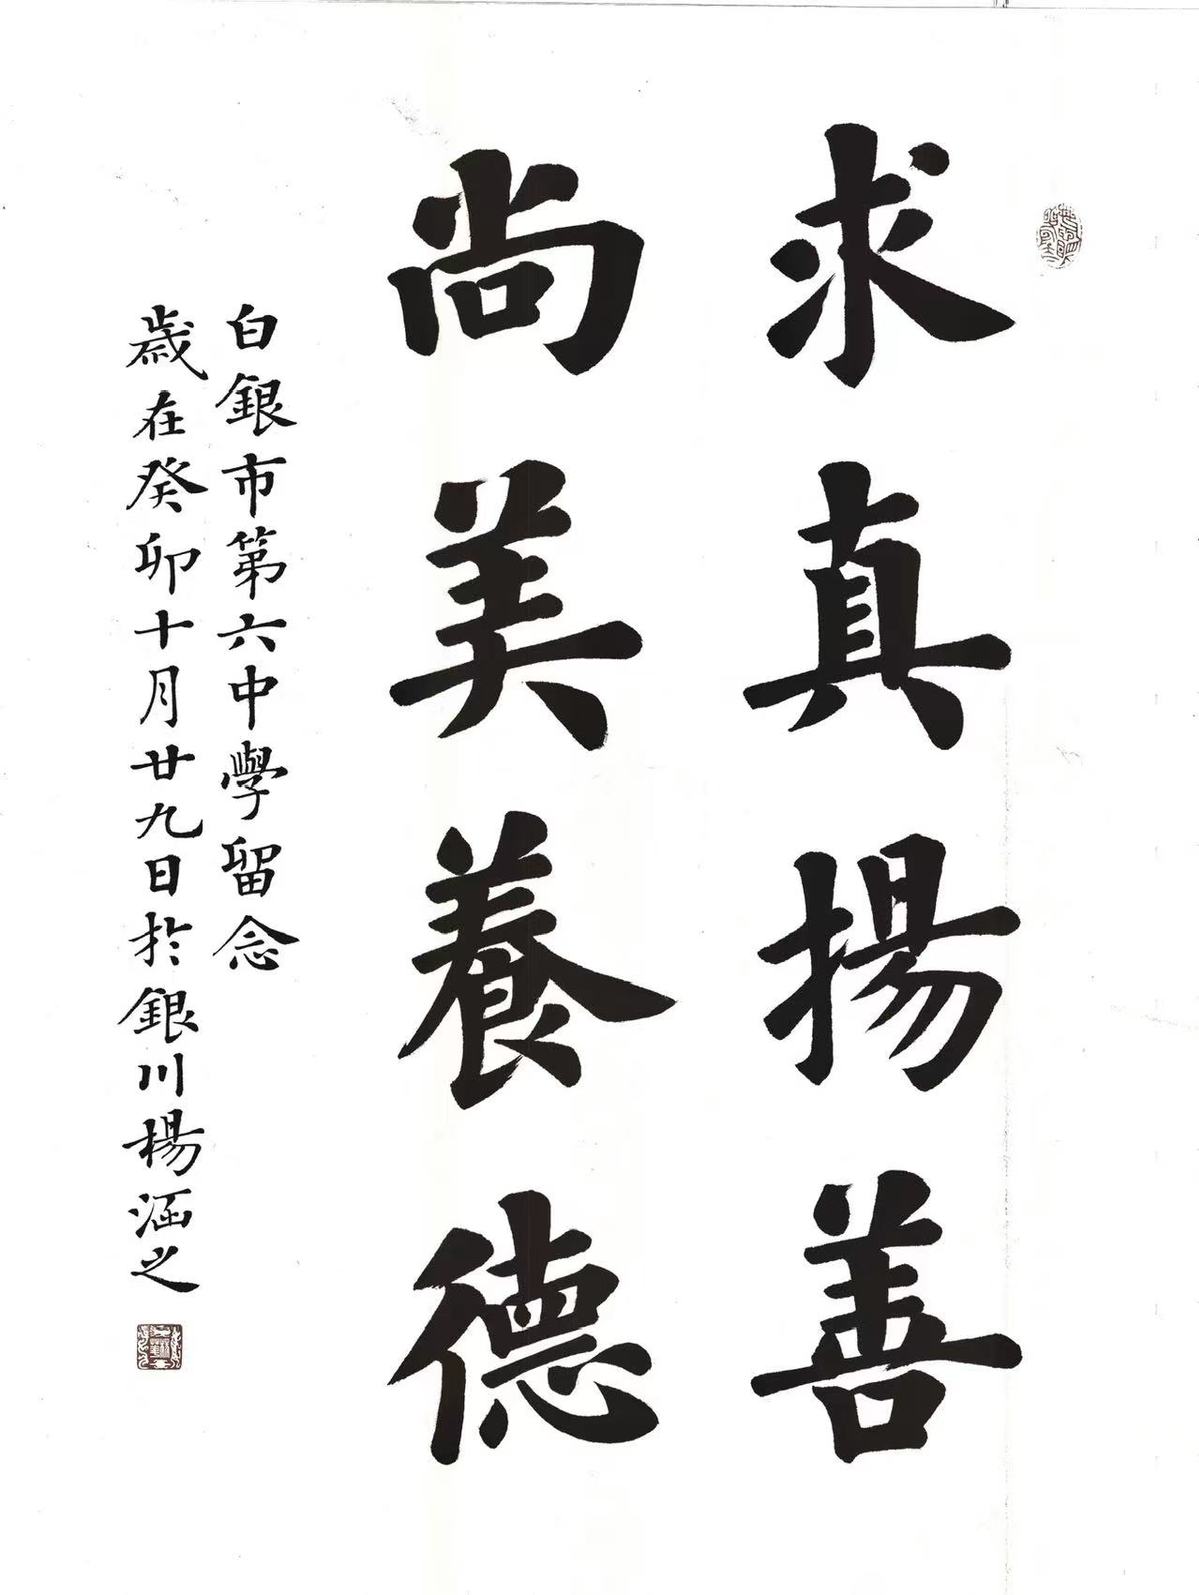 求真揚善
尚美養德
白銀市第六中學留念
歲在癸卯十月廿九日於銀川楊涵之